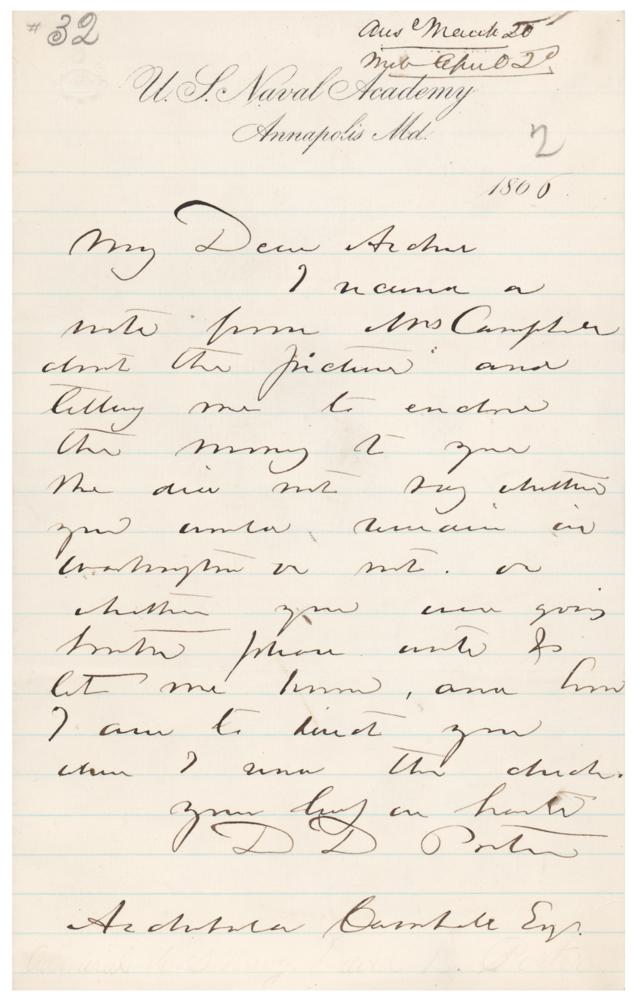 #32
Ansd March 20
U. S. Naval Academy
Annapolis Md.
2
1866
My Dear Archie
I received a
note from Mrs Campbell
about the "picture" and
telling me to enclose
the money to you
She did not say whether
you would remain in
Washington or not. or
whether you were going
please write &
let me know, and how
I am to direct you
when I send the check.
Yours truly in haste
D D Porter
Archibald Campbell Esq.